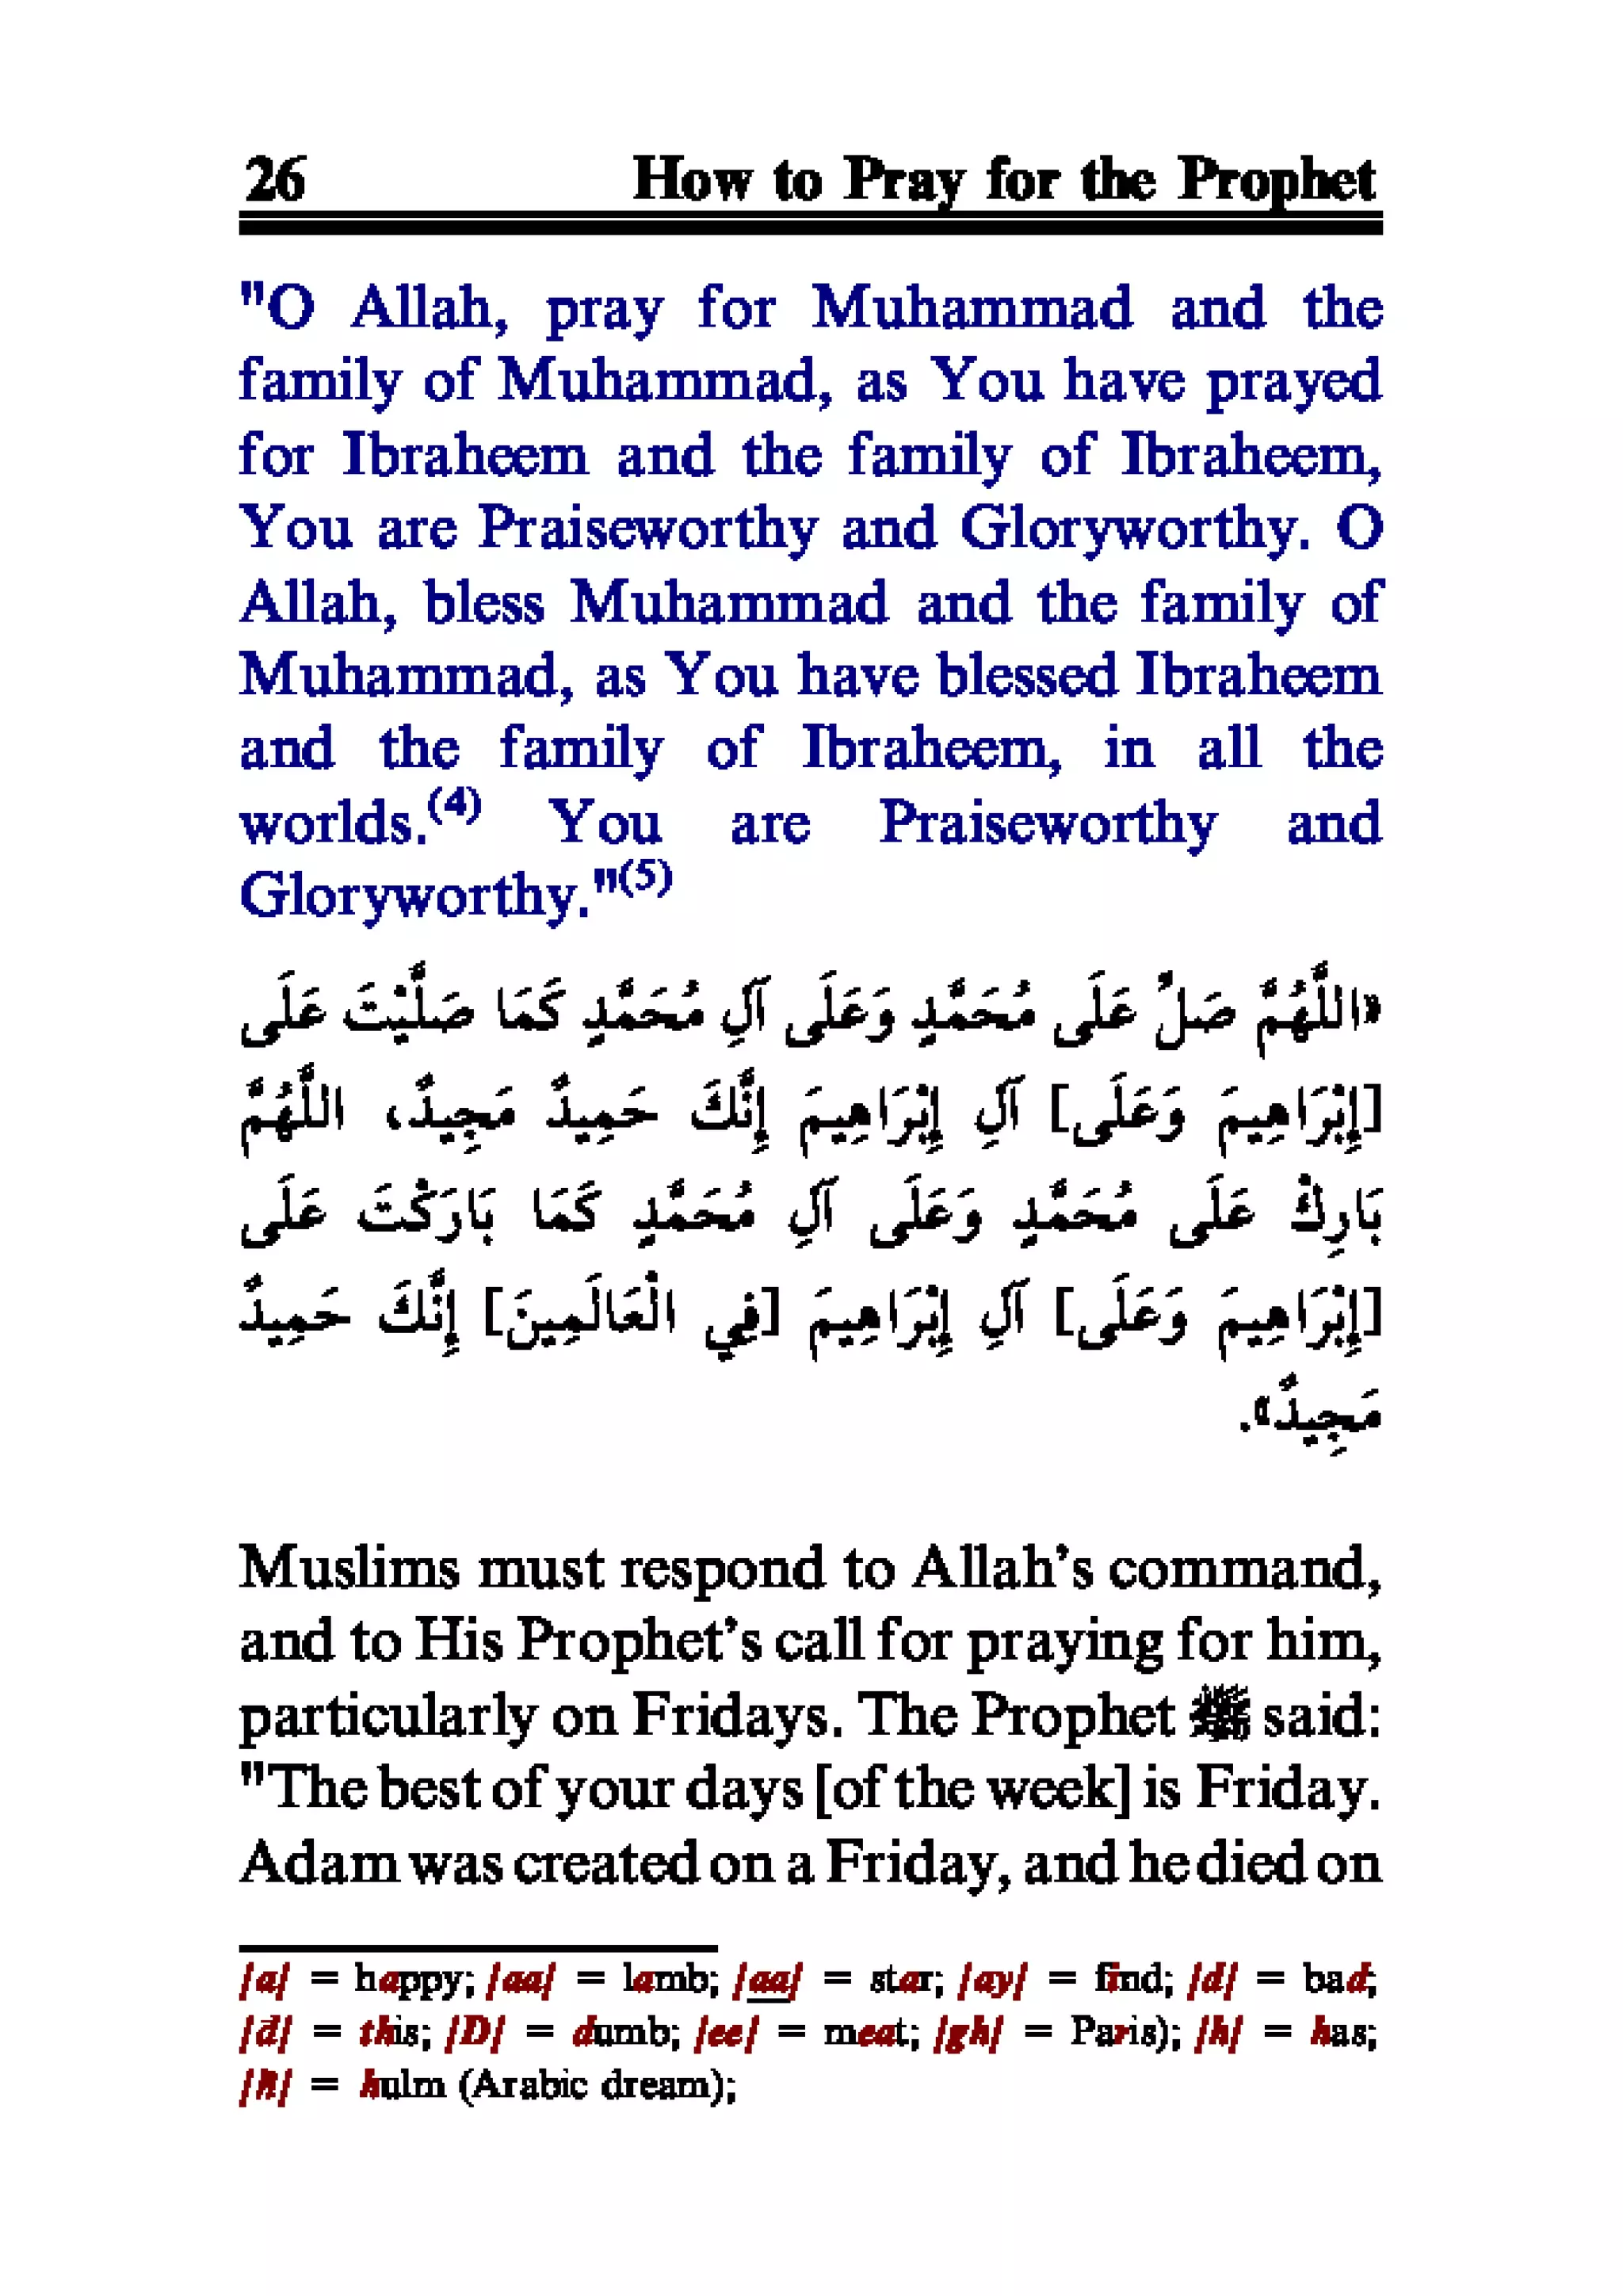 26 How to Pray for the Prophet
"O Allah, pray for Muhammad and the
family of Muhammad, as You have prayed
for Ibraheem and the family of Ibraheem,
You are Praiseworthy and Gloryworthy. O
Allah, bless Muhammad and the family of
Muhammad, as You have blessed Ibraheem
and the family of Ibraheem, in all the
worlds.(4) You are Praiseworthy and
Gloryworthy."(5)
«اللَّهُمَّ صَلِّ عَلَى مُحَمَّدٍ وَعَلَى آلِ مُحَمَّدٍ كَمَا صَلَّيْتَ عَلَى
[إِبْرَاهِيمَ وَعَلَى] آلِ إِبْرَاهِيمَ إِنَّكَ حَمِيدٌ مَجِيدٌ، اللَّهُمَّ
بَارِكْ عَلَى مُحَمَّدٍ وَعَلَى آلِ مُحَمَّدٍ كَمَا بَارَكْتَ عَلَى
[إِبْرَاهِيمَ وَعَلَى] آلِ إِبْرَاهِيمَ [فِي الْعَالَمِينَ] إِنَّكَ حَمِيدٌ
مَجِيدٌ».
Muslims must respond to Allah's command,
and to His Prophet's call for praying for him,
particularly on Fridays. The Prophet ﷺ said:
"The best of your days [of the week] is Friday.
Adam was created on a Friday, and he died on
/a/ = happy; /aa/ = lamb; /aa/ = star; /ay/ = find; /d/ = bad;
/đ/ = this; /D/ = dumb; /ee/ = meat; /gh/ = Paris); /h/ = has;
/ħ/ = hulm (Arabic dream);